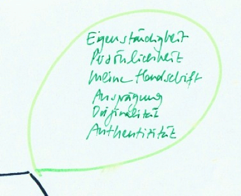 Eigenständigkeit
Persönlichkeit
meine Handschrift
Ausprägung
Originalität
Authentizität